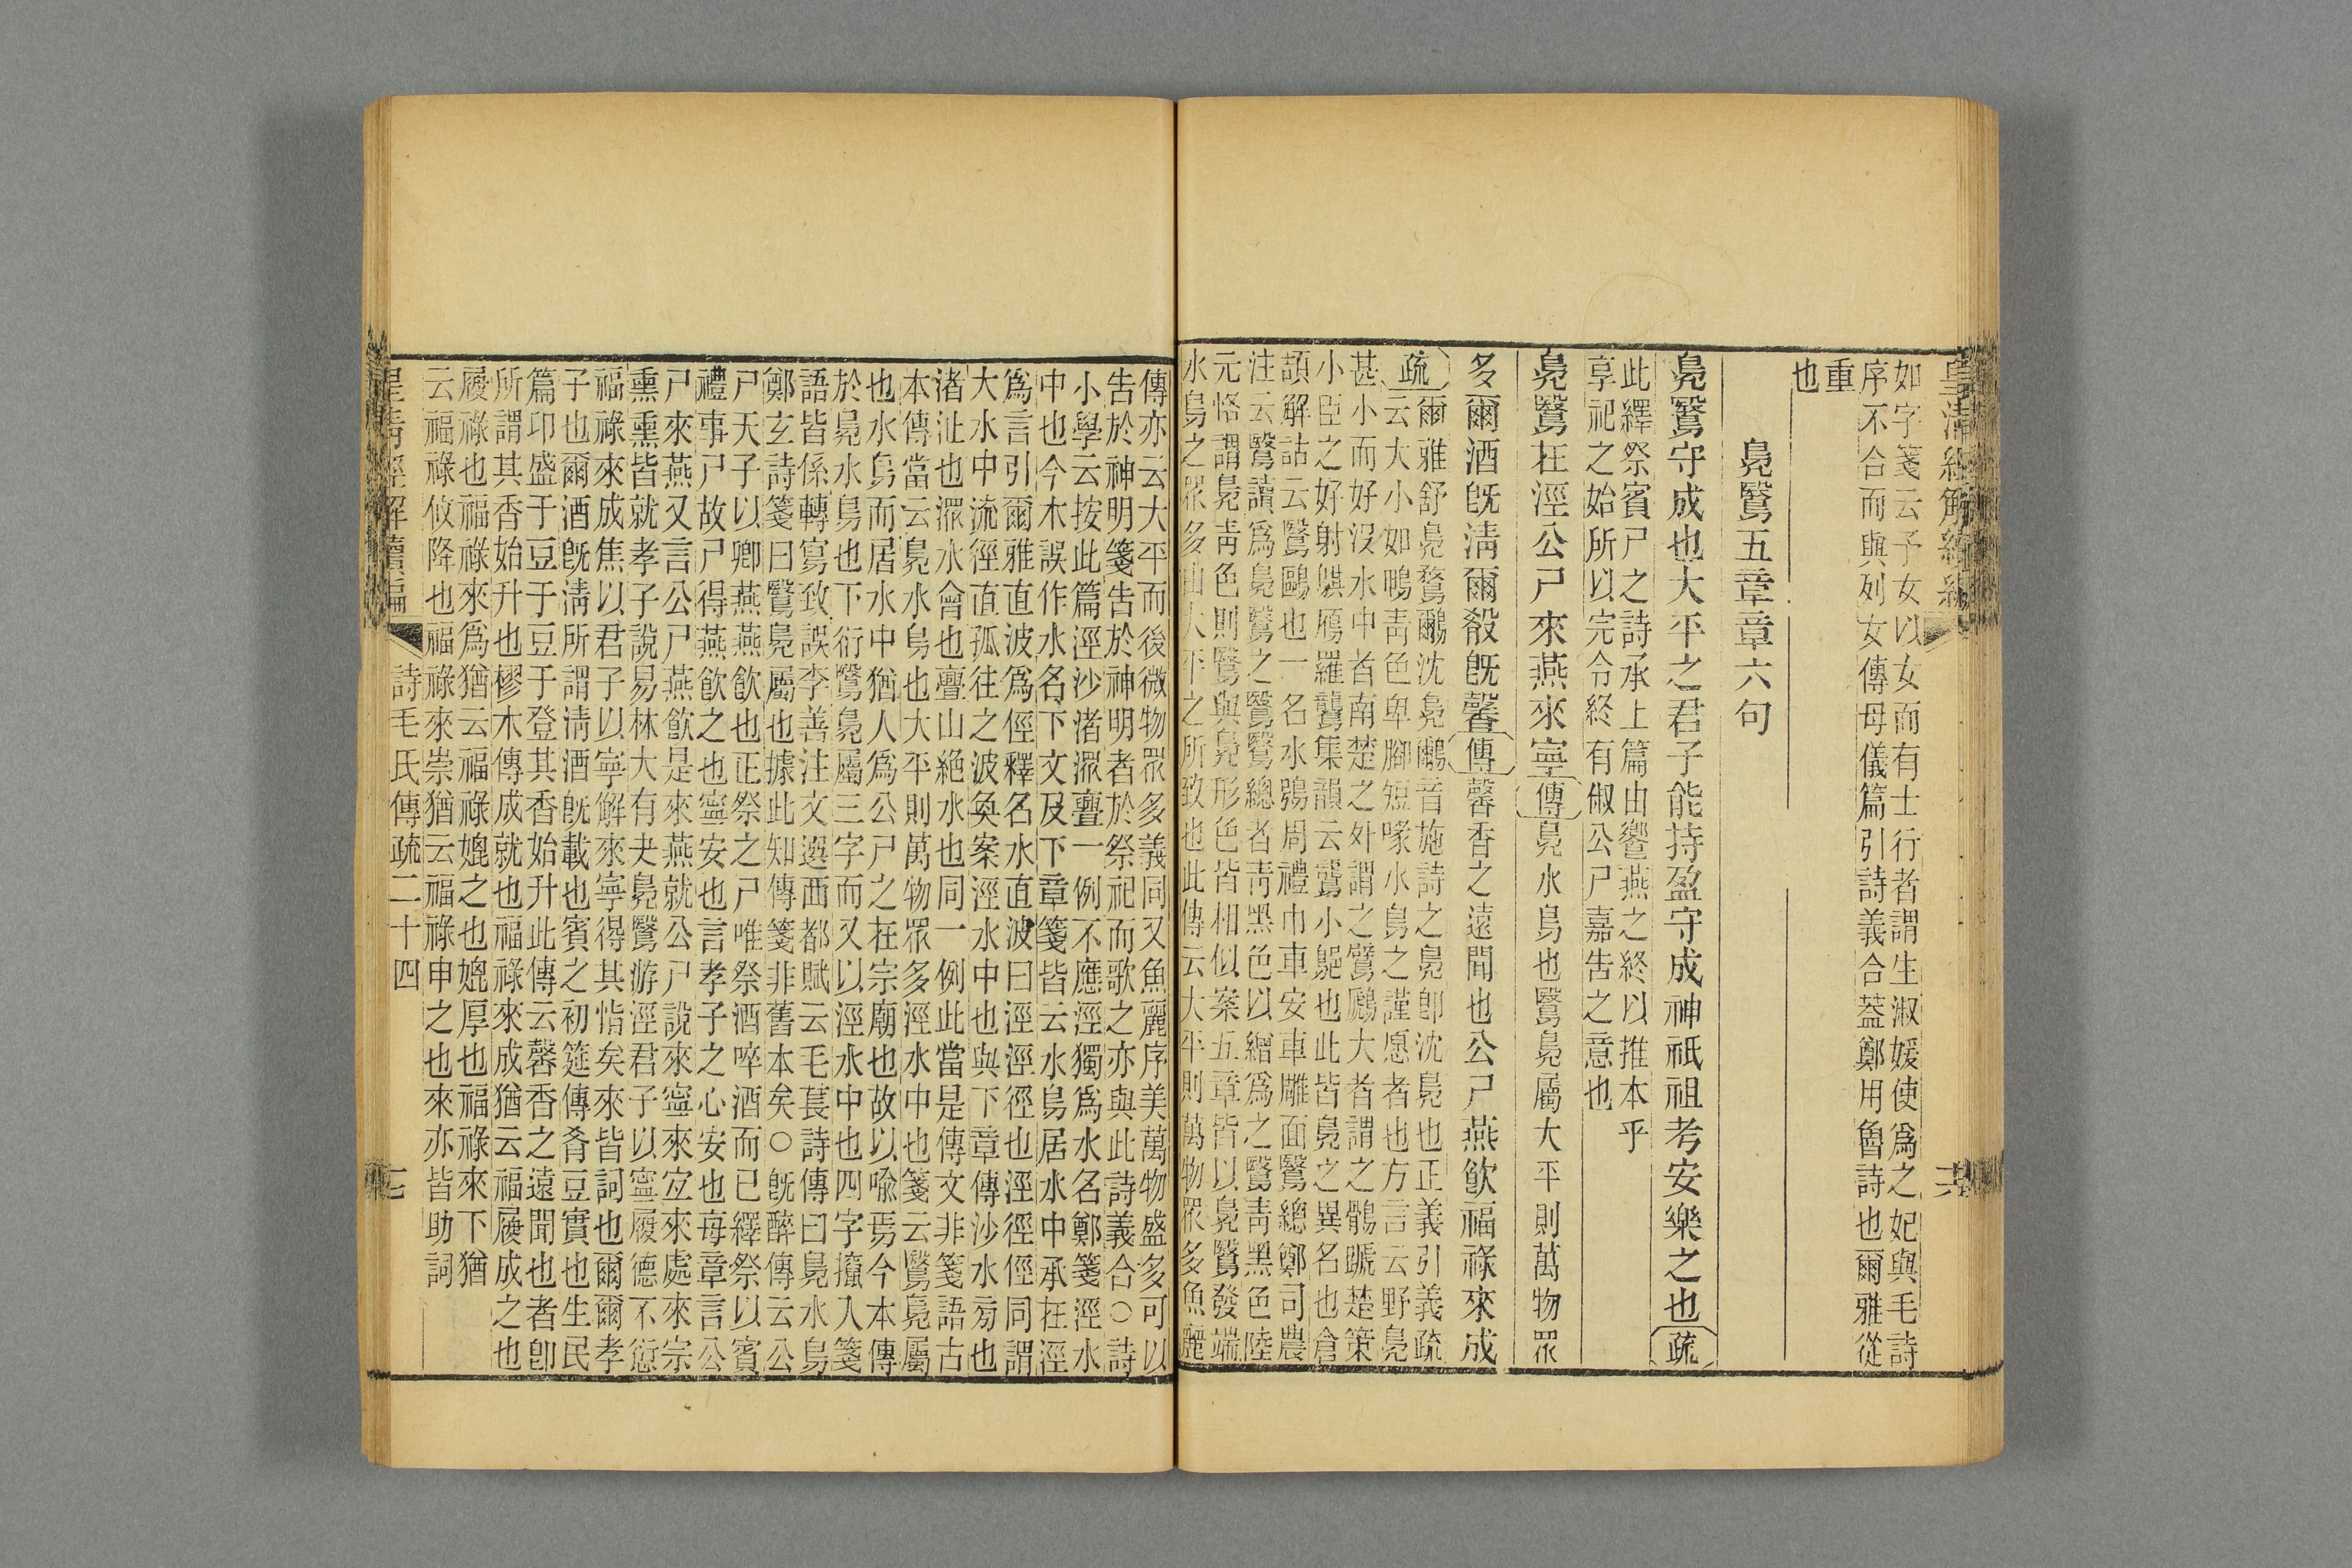 如字箋云予女以女而有士行者謂生淑媛使爲之妃與毛詩
序不合而與列女傳母儀篇引詩義合蓋鄭用魯詩也爾雅從
重
也
鳧鷖五章章六句
鳧鷖守成也大平之君子能持盈守成神祇祖考安樂之也疏
此繹祭賓尸之詩承上篇由饗燕之終以推本乎
享祀之始所以完令終有俶公尸嘉告之意也
鳧鷖在涇公尸來燕來寧傳鳧水鳥也鷖鳧屬大平則萬物眾
多爾酒旣淸爾殽旣馨傳馨香之遠聞也公尸燕飮福祿來成
疏爾雅舒鳧鶩鸍沈鳧鸍音施詩之鳧卽沈鳧也正義引義疏
云大小如鴨靑色卑腳短喙水鳥之謹愿者也方言云野鳧
甚小而好沒水中者南楚之外謂之鷿鷉大者謂之鶻蹏楚策
小臣之好射鶀鴈羅鸗集韻云鸗小鳧也此皆鳧之異名也倉
頡解詁云鷖鷗也一名水鴞周禮巾車安車雕面鷖總鄭司農
注云鷖讀爲鳧鷖之鷖鷖總者靑黑色以繒爲之鷖靑黑色陸
元恪謂鳧靑色則鷖與鳧形色皆相似案五章皆以鳧鷖發端
水鳥之眾多由大平之所致也此傳云大平則萬物眾多魚麗
傳亦云大平而後微物眾多義同又魚麗序美萬物盛多可以
告於神明箋告於神明者於祭祀而歌之亦與此詩義合○詩
小學云按此篇涇沙渚潀亹一例不應涇獨爲水名鄭箋涇水
中也今本誤作水名下文及下章箋皆云水鳥居水中承在涇
爲言引爾雅直波爲徑釋名水直波曰涇涇徑也涇徑徑同謂
大水中流徑直孤往之波奐案涇水中也與下章傳沙水旁也
渚沚也潀水會也亹山絶水也同一例此當是傳文非箋語古
本傳當云鳧水鳥也大平則萬物眾多涇水中也箋云鷖鳧屬
也水鳥而居水中猶人爲公尸之在宗廟也故以喩焉今本傳
於鳧水鳥也下衍鷖鳧屬三字而又以涇水中也四字攛入箋
語皆係轉寫致誤李善注文選西都賦云毛萇詩傳曰鳧水鳥
鄭玄詩箋曰鷖鳧屬也據此知傳箋非舊本矣○旣醉傳云公
尸天子以卿燕燕飮也正祭之尸唯祭酒啐酒而已繹祭以賓
禮事尸故尸得燕飮之也寧安也言孝子之心安也每章言公
尸來燕又言公尸燕飮是來燕就公尸說來寧來宜來處來宗
熏熏皆就孝子說易林大有夬鳧鷖游涇君子以寧履德不愆
福祿來成焦以君子以寧解來寧得其恉矣來皆詞也爾爾孝
子也爾酒旣淸所謂淸酒旣載也賓之初筵傳肴豆實也生民
篇卬盛于豆于豆于登其香始升此傳云馨香之遠聞也者卽
所謂其香始升也樛木傳成就也福祿來成猶云福履成之也
履祿也福祿來爲猶云福祿媲之也媲厚也福祿來下猶
云福祿攸降也福祿來崇猶云福祿申之也來亦皆助詞
皇淸經解續編　詩毛氏傳疏二十四